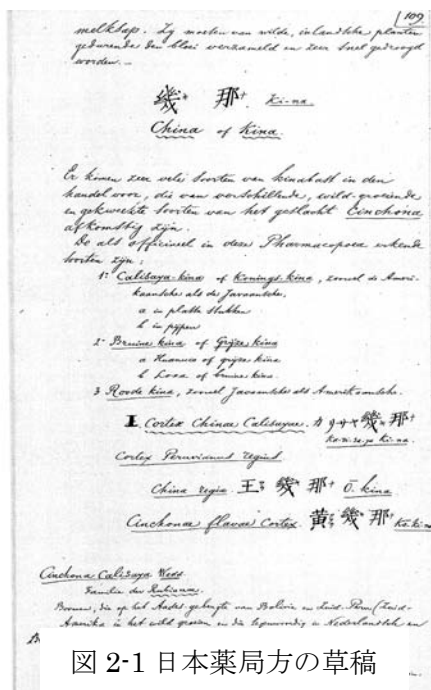 109
melksap. Zy moeten van wilde, inlandsche planten
gedurende den bloei verzameld en zeer snel gedroogd
worden. —
幾キ 那ナ Ki-na.
China of Kina.
Er komen zeer vele soorten van kinabast in den
handel voor, die van verschillende, wild-groeiende
en gekweekte soorten van het geslacht Cinchona
afkomstig zijn.
De als officineel in deze Pharmacopoea erkende
soorten zijn:
1° Calisaya-kina of Konings-kina, zoowel de Ameri-
kaansche als de Javaansche,
a in platte stukken
b in pijpen
2° Bruine kina of Grijze kina
a Huanuco of grijze kina
b Loxa of bruine kina.
3 Roode kina, zoowel Javaansche als Amerikaansche.
I. Cortex Chinae Calisayae. カリサヤ 幾キ 那ナ
Ka-ri-sa-ya Ki-na.
Cortex Peruvianus regius
China regia. 王ヲウ 幾キ 那ナ Ō. kina
Cinchonae flavae Cortex. 黄 幾キ 那ナ Kō.kina
Cinchona Calisaya Wedd.
Familie der Rubiaceae.
Boomen, die op het Andes-gebergte van Bolivia en Zuid-Peru (Zuid-
Amerika in het wild groeien en die tegenwoordig in Nederlandsch en
図 2-1 日本薬局方の草稿